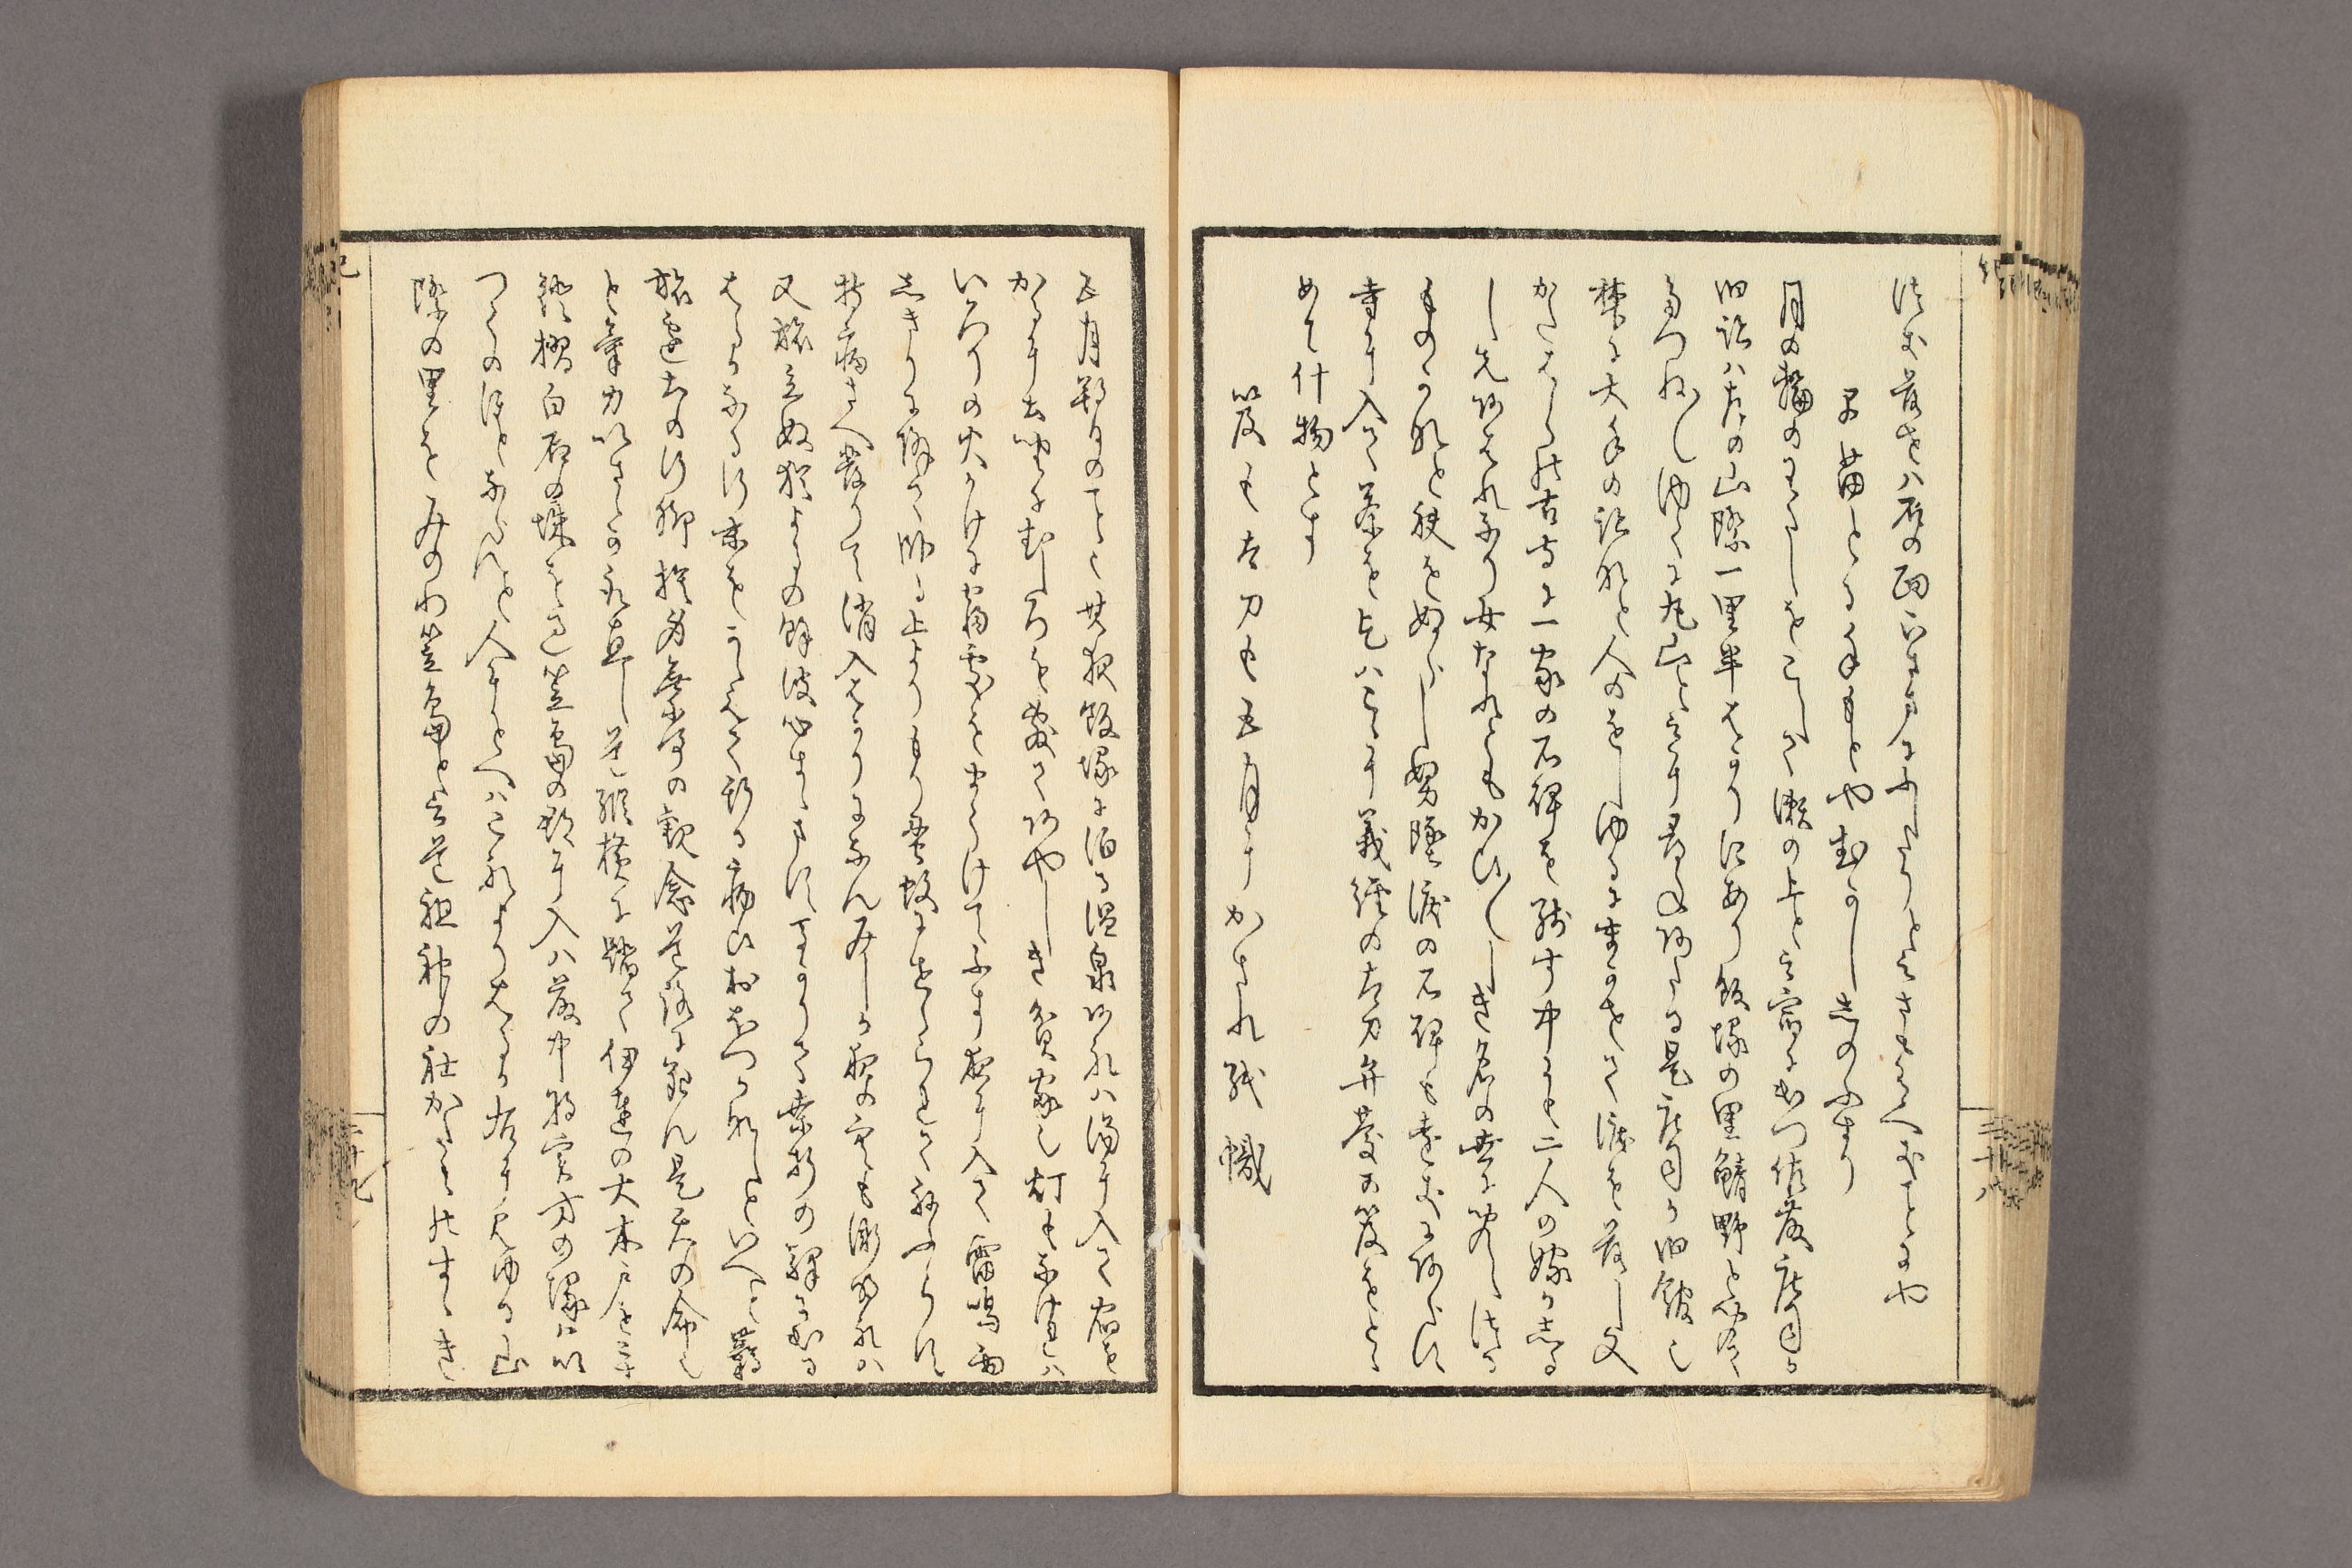 谷に落せハ石の面下さまにふしたりと云さもあるへきことにや
早苗とる手もとや昔しのふすり
月の輪のわたしをこして瀬の上と云宿に出つ佐藤庄司か
旧跡ハ左の山際一里半はかりにあり飯塚の里鯖野と聞て
たつね〱ゆくに丸山と云に尋あたる是庄司か旧館也
梺に大手の跡なと人のをしゆるにまかせて涙を落し又
かたはらの古寺に一家の石碑を残す中にも二人の嫁かしる
し先あはれなり女なれともかひ〱しき名の世に聞えつる
ものかなと袂をぬらしぬ墮涙の石碑も遠きにあらす
寺に入て茶を乞ハこゝに義経の太刀弁慶か笈をとゝ
めて什物とす
笈も太刀も五月にかされ紙幟
五月朔日のこと也其夜飯塚に泊る温泉あれハ湯に入て宿を
かるに土坐にむしろを敷てあやしき貧家也灯もなけれハ
いろりの火かけに寐處をまうけてふす夜に入て雷鳴雨
しきりに降て臥る上よりもり蚤蚊にせゝられてねふらす
持病さへ發りて消入はかりになんみしか夜の空も漸明れハ
又旅立ぬ猶よるの餘波心すゝます馬かりて桑折の驛に出る
はるかなる行末をかゝえて斯る病ひおほつかなしといへと羇
旅邊土の行脚捨身無常の観念道路に死ん是天の命也
と氣力いさゝか取直し道縦横に踏て伊達の大木戸をこす
鐙摺白石の城を過笠島の郡に入ハ藤中将実方の塚ハい
つくのほとならんと人にとへハこれよりはるか右に見ゆる山
際の里をみのわ笠島と云道祖神の社かたみのすゝき